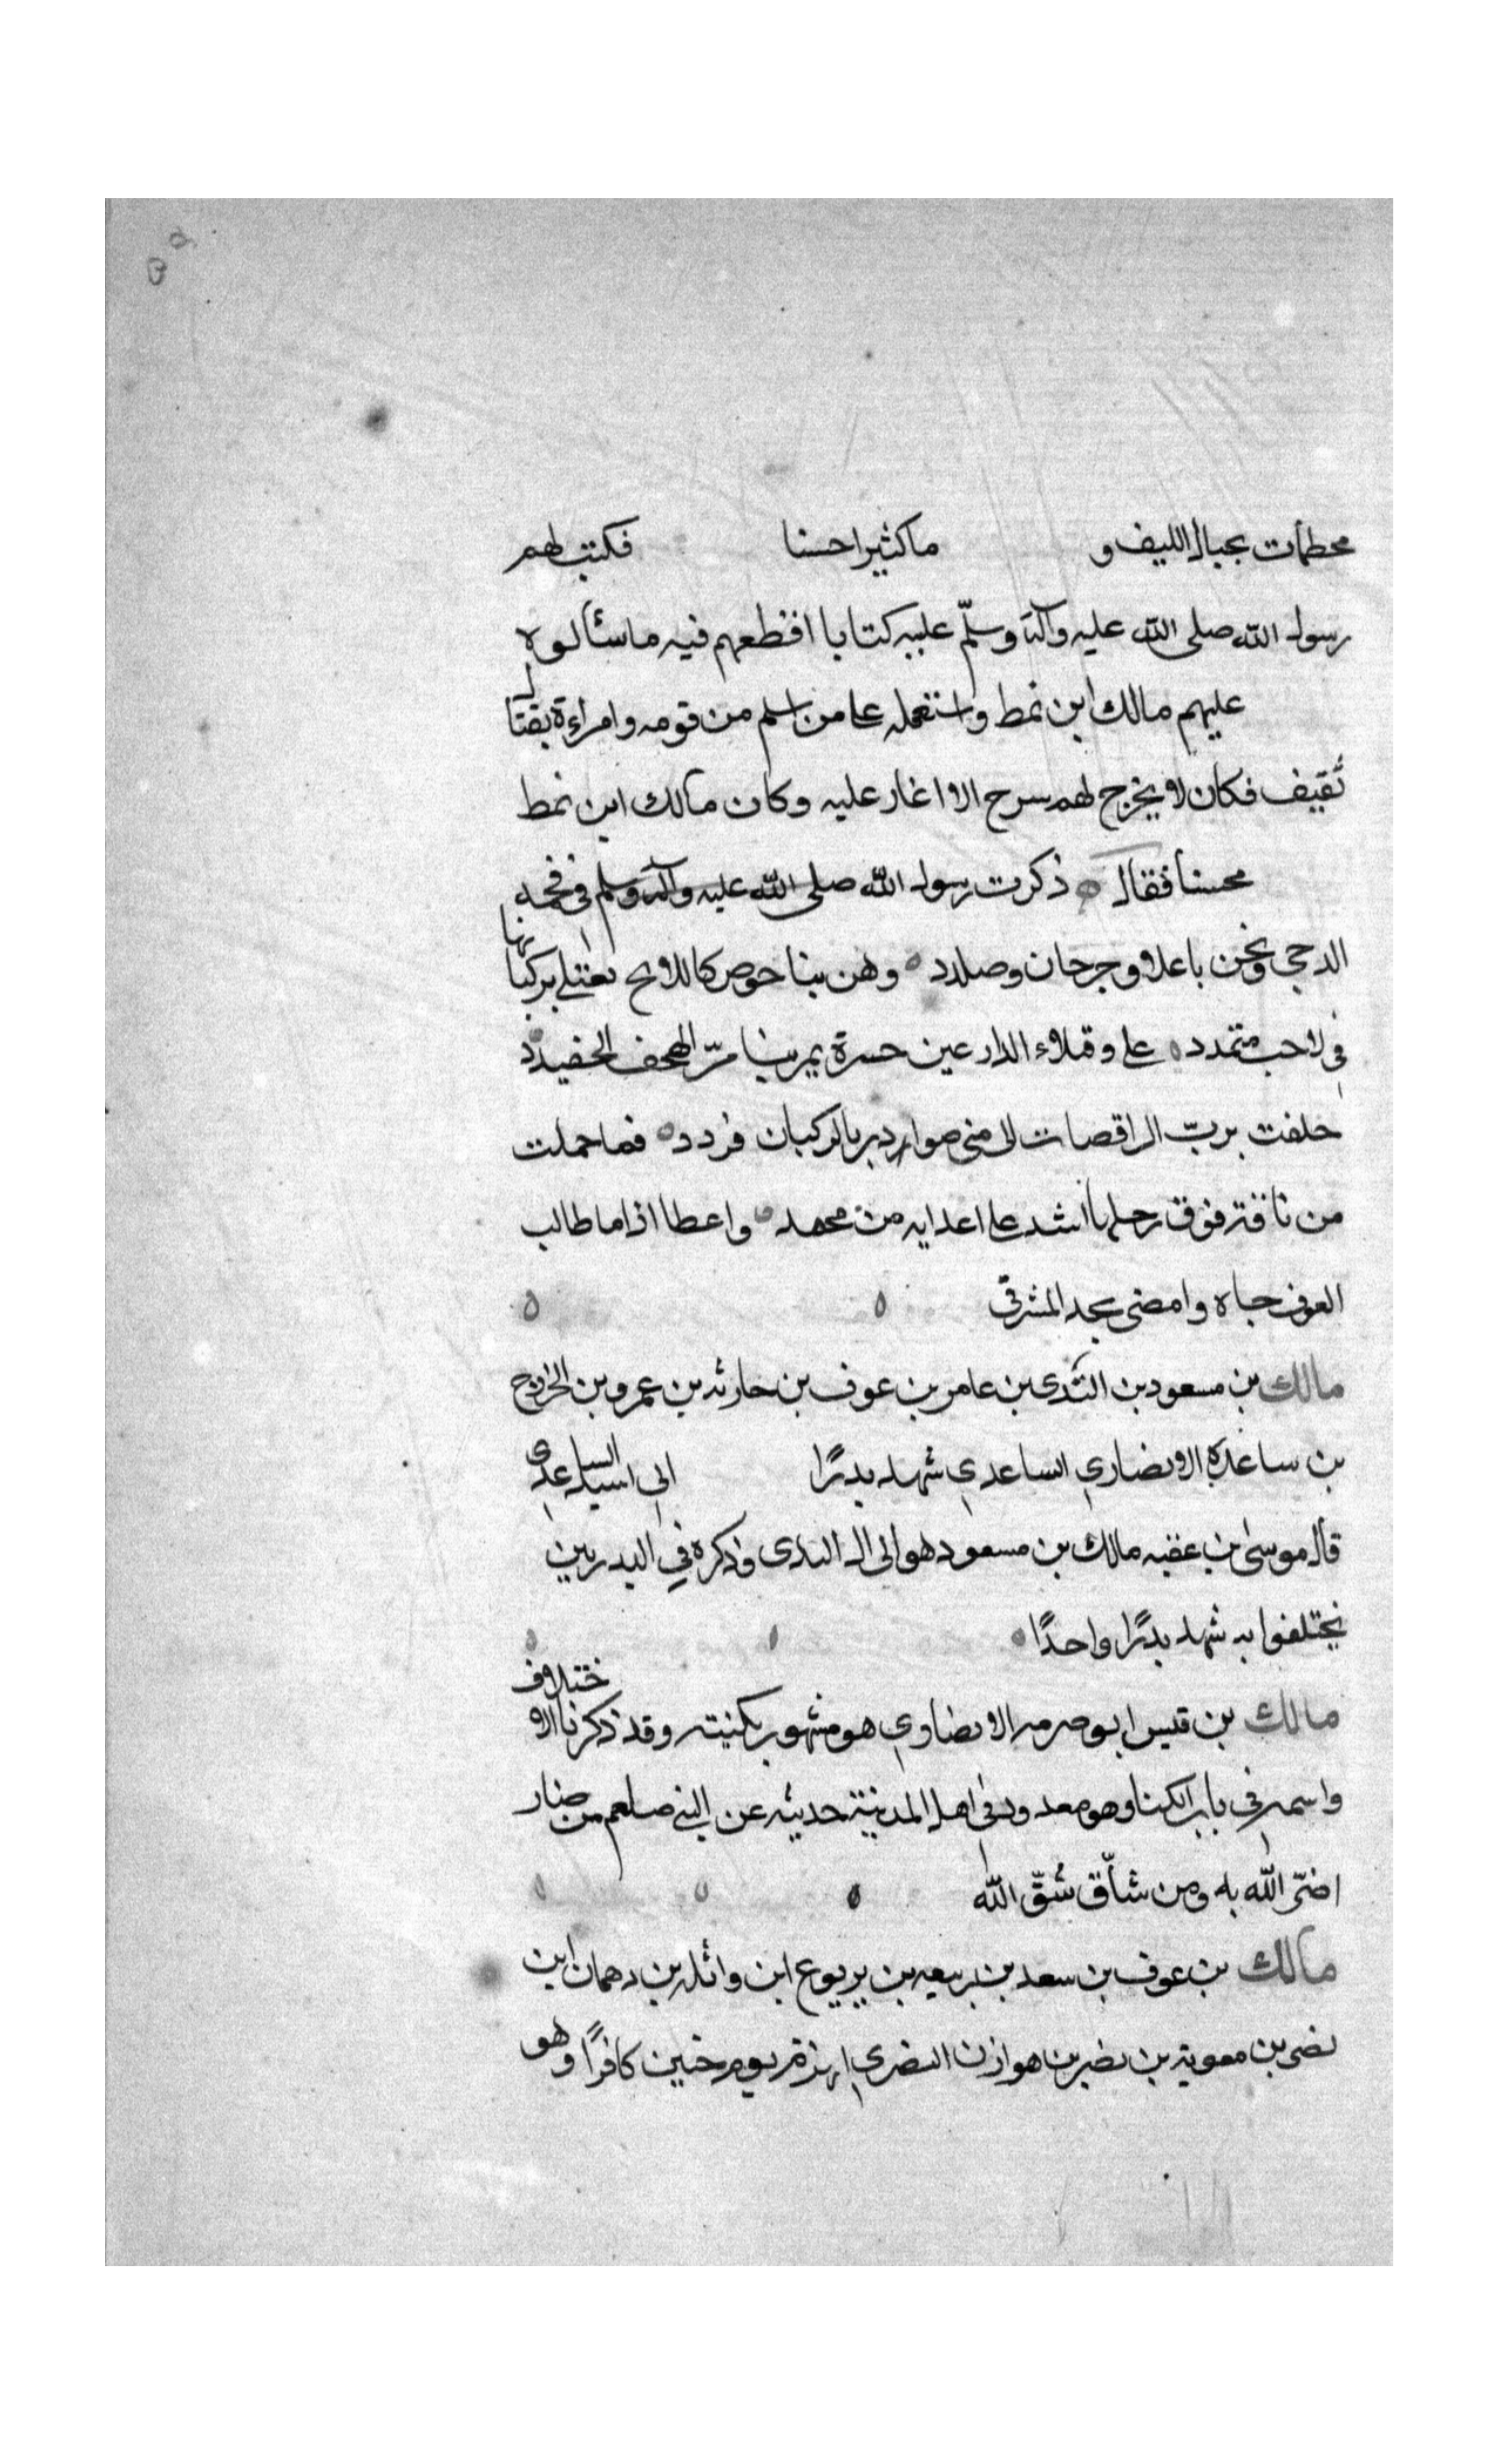 محطمات بحبال الليف و ماكثيرا حسنا فكتب لهم
رسول الله صلى الله عليه وآله وسلّم عليه كتابا اقطعهم فيه ما سئالوه
عليهم مالك ابن نمط واستعمله على من اسلم من قومه وامراءة بقتال
ثقيف فكان لا يخرج لهم سرح الا اغار عليه وكان مالك ابن نمط
محسنا فقال ذكرت رسول الله صلى الله عليه وآله وسلم في فحمه
الدجى ونحن باعلاو جرحان وصلدد وهن بنا حوص كالملايح تعتلي بركبانها
في لاحب متمدد على وقلاء الدارعين حسرة يمر بنا مرّ الهجف الخفيدد
حلفت بربّ الراقصات الى منى صوار دبر بالركبان فردد فما حملت
من ناقة فوق رحلها اشد على اعدايه من محمد واعطا اذا ما طالب
العرف جاه وامضى بحد المشرقى
مالك بن مسعود بن البَدى بن عامر بن عوف بن حارثه بن عمرو بن الخزرج
بن ساعدة الانصاري الساعدي شهد بدرًا الى اسيد الساعدى
قال موسىٰ بن عقبه مالك بن مسعود هو الى ال البدى وذكره في البدريين
يختلفوا به شهد بدرًا واحدًا
مالك بن قيس ابو صرمه الانصاوي هو مشهور بكنيته وقد ذكرنا الاختلاف
واسمه في باب الكنا وهو معد ود في اهل المدينة حديثه عن النبي صلعم من ضار
اضرّ الله به ومن شاقّ شُقّ الله
مالك بن عوف بن سعد بن ربيعه بن يربوع ابن واثله بن دهمان ابن
نضى بن معوية بن نضر بن هوازن النضري انهزم يوم حنين كافرًا وهو